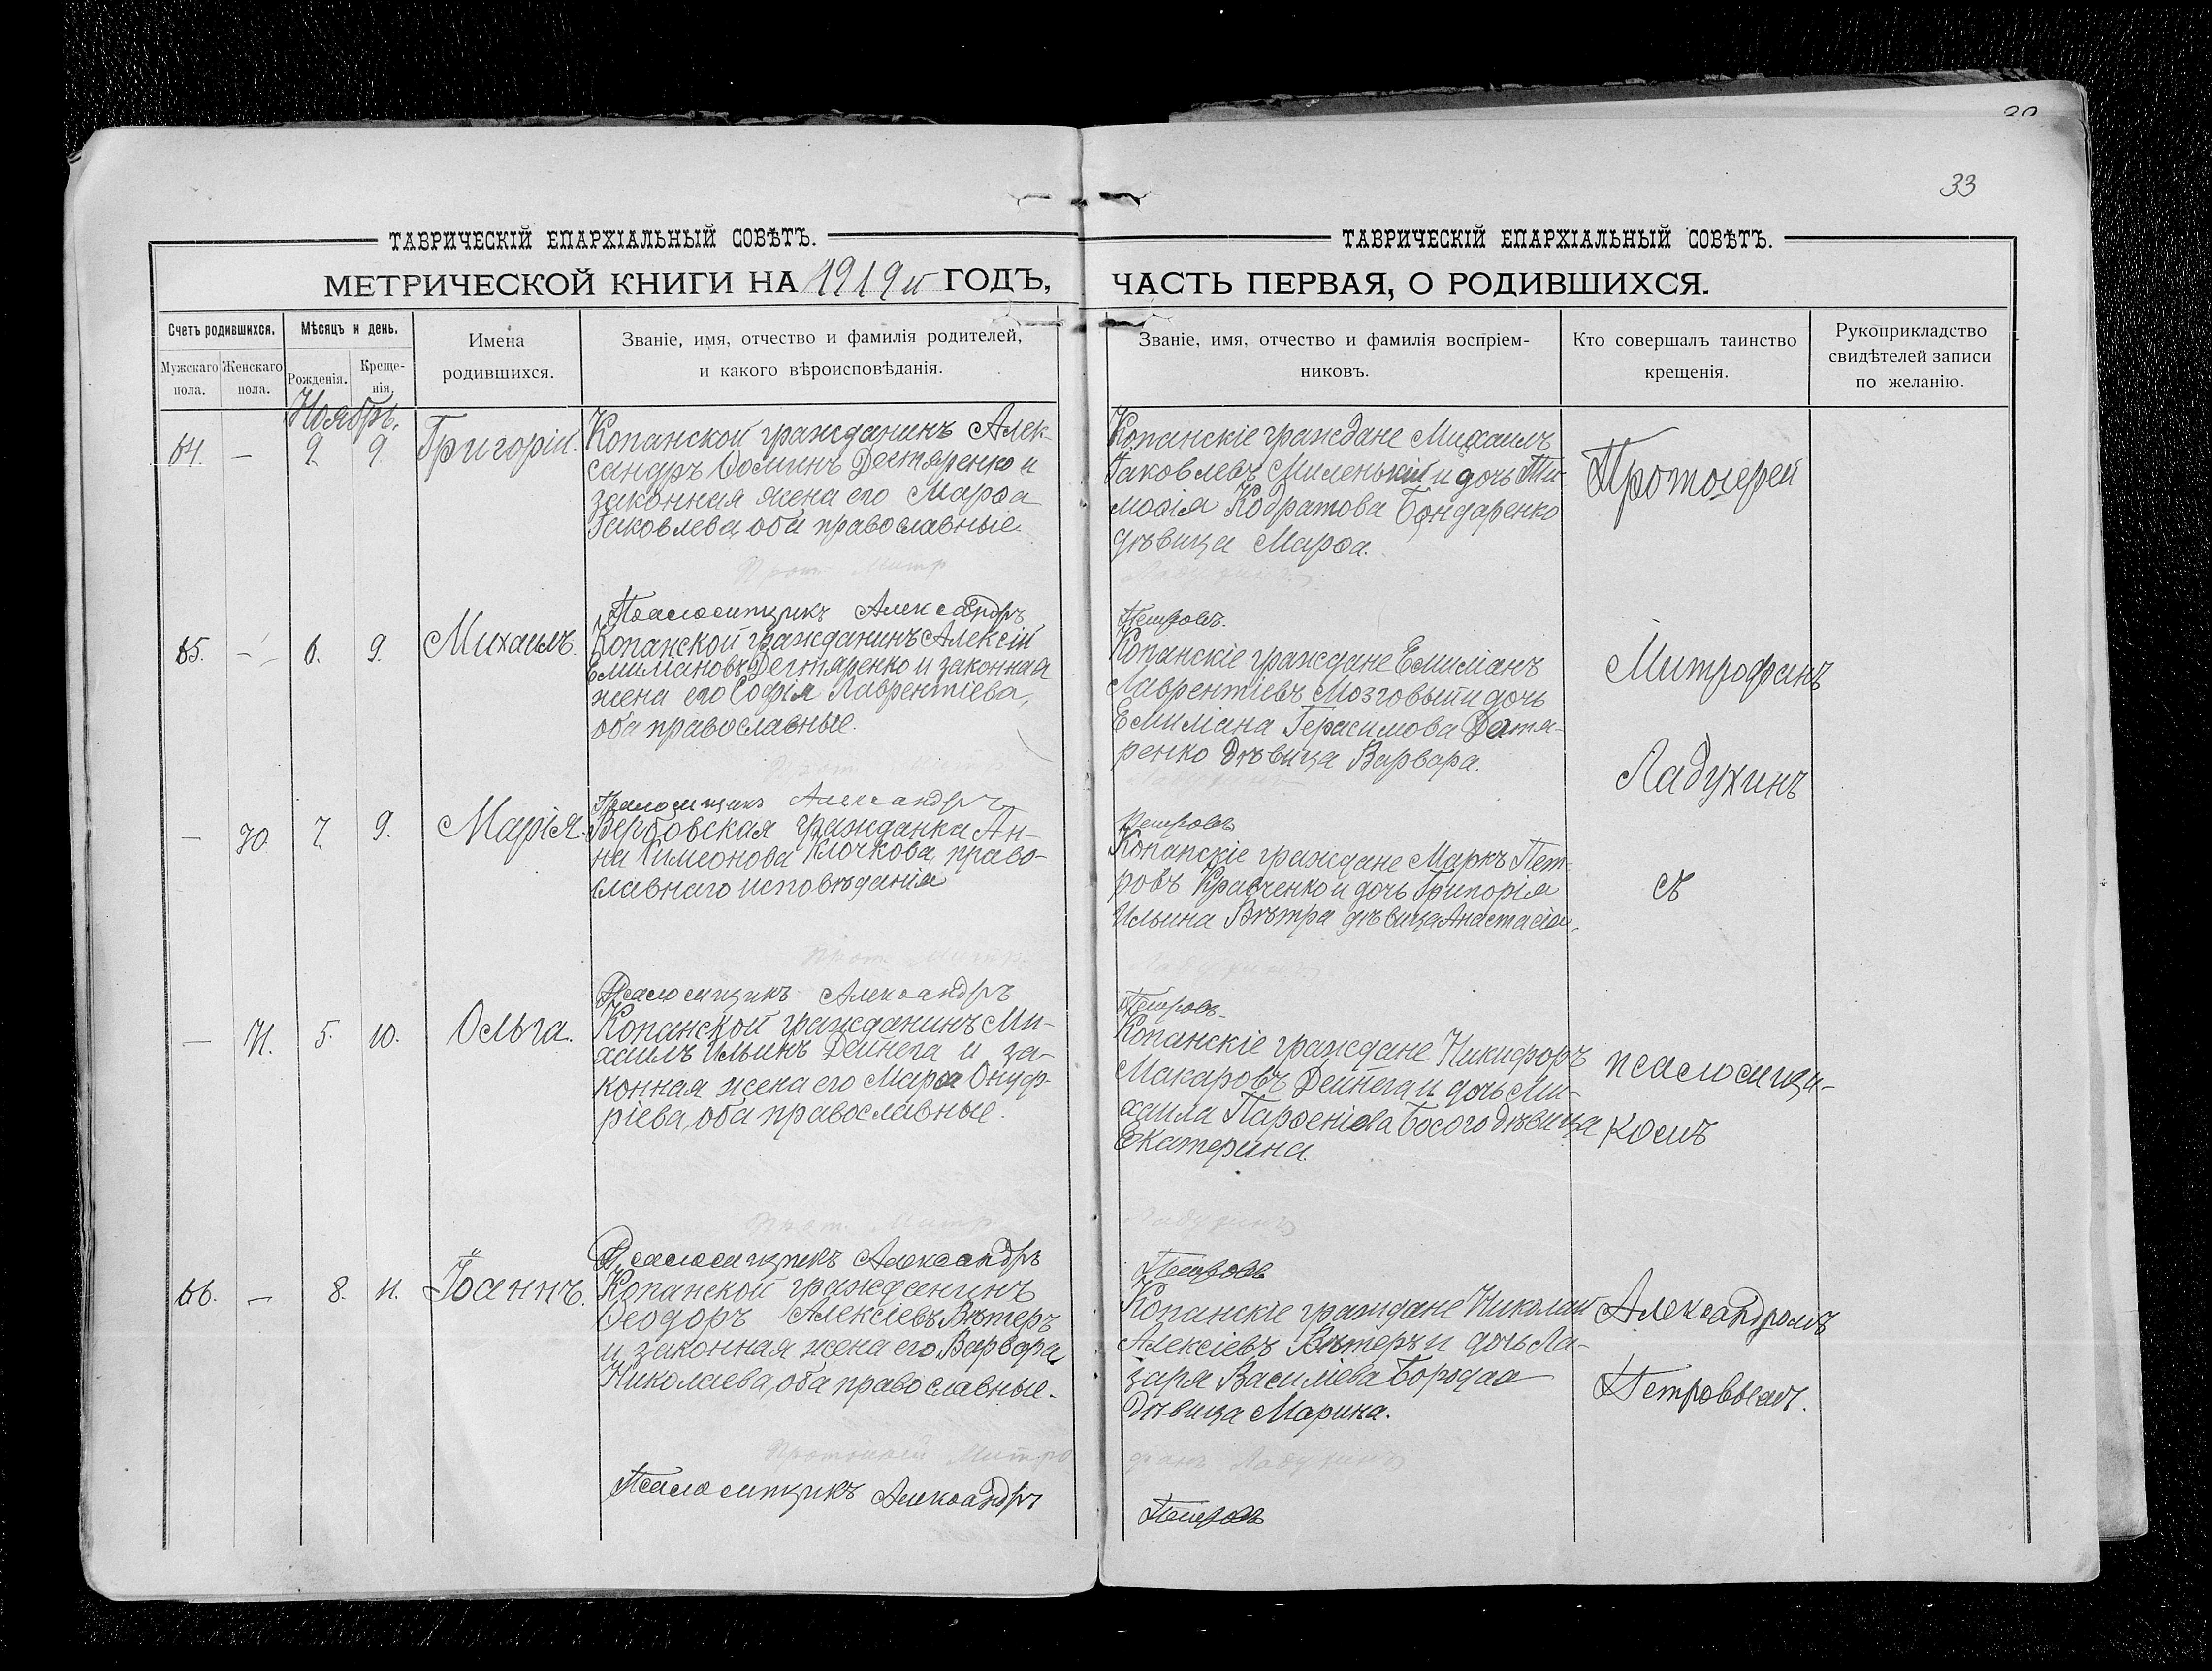 33
ТАВРИЧЕСКІЙ ЕПАРХІАЛЬНЫЙ СОВѢТЪ.
МЕТРИЧЕСКОЙ КНИГИ НА 1919й ГОДЪ,
Счетъ родившихся.
Мѣсяцъ и день.
Имена родившихся.
Званіе, имя, отчество и фамилія родителей,
и какого вѣроисповѣданія.
Мужскаго пола.
Женскаго пола.
Рожденія.
Крещенія.
Ноябрь.
64. — 2 9 Григорій.
Копанской гражданинъ Алек-
сандръ Ѳоминъ Дегтяренко и
законная жена его Марѳа
Іаковлева, оба православные.
Прот. Митр
Псаломщикъ Александръ
65. — 6. 9. Михаилъ.
Копанской гражданинъ Алексій
Емиліановъ Дегтяренко и законная
жена его Софія Лаврентіева,
оба православные.
Псаломщикъ Александръ
— 70 7 9. Марія.
Вербовская гражданка Ан-
на Симеонова Клочкова, право-
славнаго исповѣданія
Прот. Митр.
Псаломщикъ Александръ
— 71. 5. 10. Ольга.
Копанской гражданинъ Ми-
хаилъ Ильинъ Дейнега и за-
конная жена его Марѳа Онуф-
ріева, оба православные.
Прот. Митр
Псаломщикъ Александръ
66. — 8. 11. Іоаннъ.
Копанской гражданинъ
Ѳеодоръ Алексіевъ Вѣтеръ
и законная жена его Варвара
Николаева, оба православные.
Протоіерей Митро
Псаломщикъ Александръ
ТАВРИЧЕСКІЙ ЕПАРХІАЛЬНЫЙ СОВѢТЪ.
ЧАСТЬ ПЕРВАЯ, О РОДИВШИХСЯ.
Званіе, имя, отчество и фамилія воспріем-
никовъ.
Кто совершалъ таинство
крещенія.
Рукоприкладство
свидѣтелей записи
по желанію.
Копанскіе граждане Михаилъ
Іаковлевъ Миленькій и дочь Ти-
моѳія Кодратова Бондаренко
дѣвица Марѳа.
Ладухинъ
Петровъ.
Копанскіе граждане Емиліанъ
Лаврентіевъ Мозговый и дочь
Емиліана Герасимова Дегтя-
ренко дѣвица Варвара.
Петровъ
Копанскіе граждане Маркъ Пет-
ровъ Кравченко и дочь Григорія
Ильина Вѣтра дѣвица Анастасія.
Ладухинъ
Петровъ.
Копанскіе граждане Никифоръ
Макаровъ Дейнега и дочь Ми-
хаила Парѳеніева Босого дѣвица
Екатерина.
Ладухинъ
Петровъ
Копанскіе граждане Николай
Алексіевъ Вѣтеръ и дочь Ла-
заря Василіева Бородая
дѣвица Марина.
фанъ Ладухинъ
Петровъ
Протоіерей
Митрофанъ
Ладухинъ
съ
псаломщи-
комъ
Александромъ
Петровымъ.